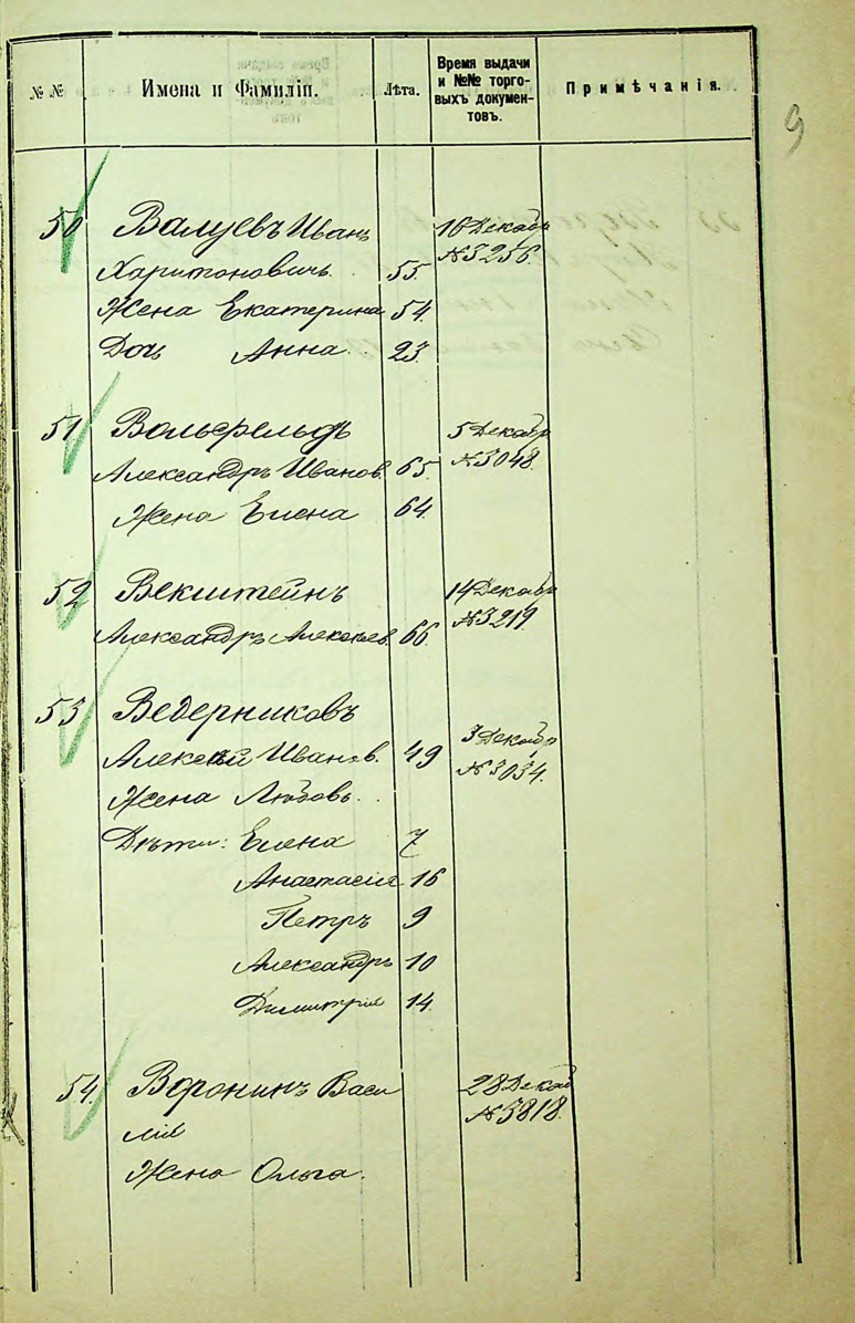 № №
Имена и Фамиліи.
Лѣта.
Время выдачи
и №№ торго-
выхъ докумен-
товъ.
Примѣчанія.
9
50 Валуевъ Иванъ 16 Декабр
Харитоновичъ. 55. №3256.
Жена Екатерина 54.
Дочь Анна. 23.
51. Вольфельдъ 5 Декабр
Александръ Иванов. 65. №3048.
Жена Елена 64.
52 Векштейнъ 14 Декабр
Александръ Алексѣев. 66. №3219.
53 Ведерниковъ
Алексѣй Иванов. 49 3 Декабр
Жена Любовь. №3034.
Дѣти: Елена 7
Анастасія 16
Петръ 9
Александръ 10
Димитрій 14.
54. Воронинъ Васи 28 Декаб
лій №3818.
Жена Ольга.